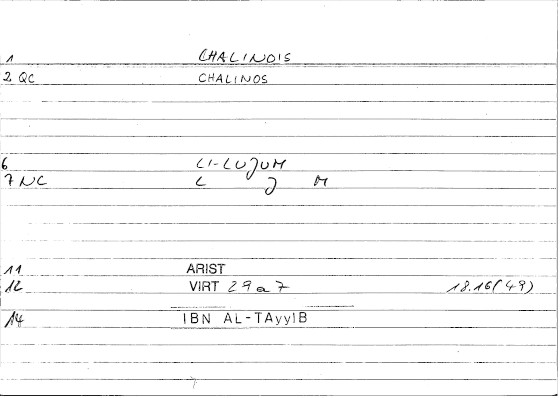 1 CHALINOIS
2 QC CHALINOS
6 LI-LUJUM
7 NC L J M
11 ARIST
12 VIRT 29a7 18.16(49)
14 IBN AL-TAyyIB